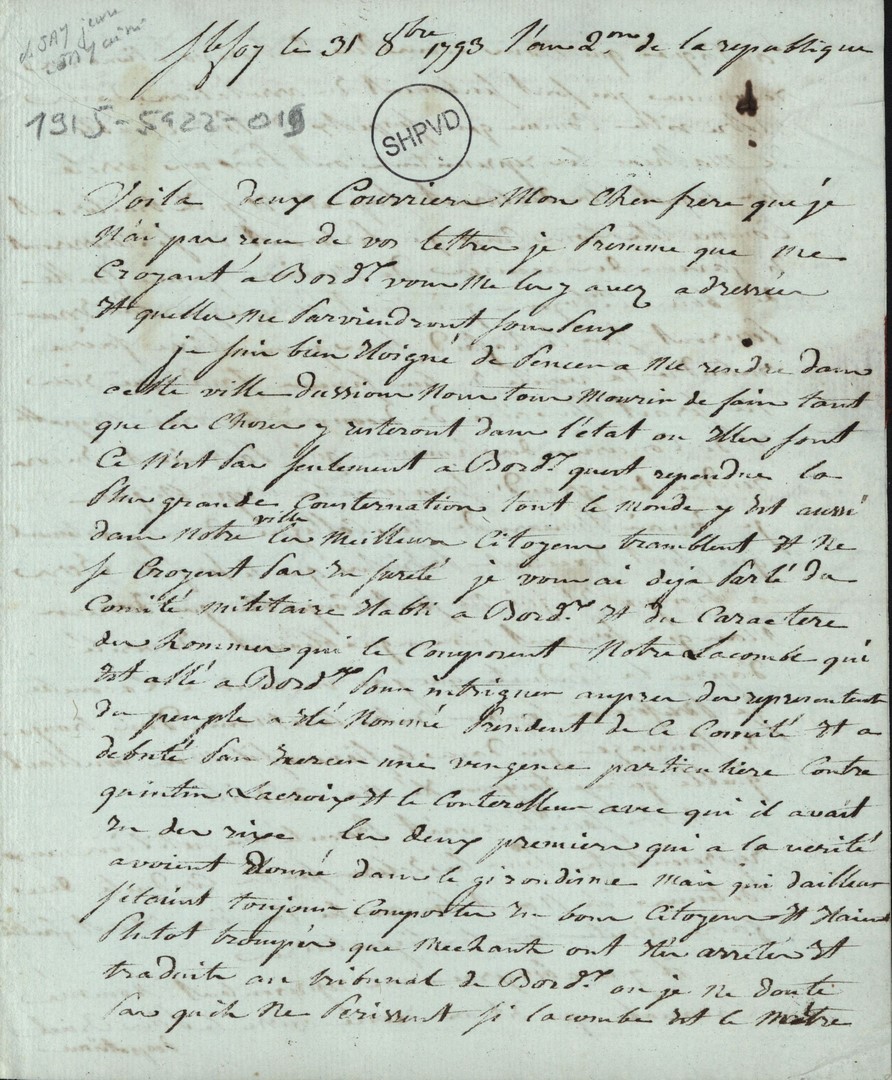 de SAY jeune
à SAY aîné
Ste foy le 31 8bre 1793 l'an 2.me de la republique
1915-5922-019
SHPVD
Voila deux Courriers Mon Cher frere que je
n'ai pas reçu de vos lettres je presume que me
Croyant a Bord.x vous me les y avez adressées
et quelles me parviendront sous peux
je suis bien eloigné de penser a me rendre dans
cette ville dussions nous tous mourir de faim tant
que les Choses y resteront dans l'état ou elles sont
Ce n'est pas seulement a Bord.x quest rependue la
plus grande Consternation tout le monde y est aussi
dans notre ville les meilleurs Citoyens tramblent et ne
se Croyent pas en sureté je vous ai deja parlé du
Comité militaire etabli a Bord.x et du Caractere
des hommes qui le Composent Notre Lacombe qui
est allé a Bord.x pour intriguer aupres des representents
du peuple a été nommé President de Ce Comité et a
debuté par exercer une vengence particuliere Contre
quintin Lacroix et le Conterolleur avec qui il avait
eu des rixe les deux premiers qui a la verité
avoient donné dans le girondisme mais qui dailleur
s'étoint toujours Comportés en bons Citoyens et etaient
plutot trompés que mechants ont été arretés et
traduits au tribunal de Bord.x ou je ne doute
pas quils ne perissent si lacombe est le maitre